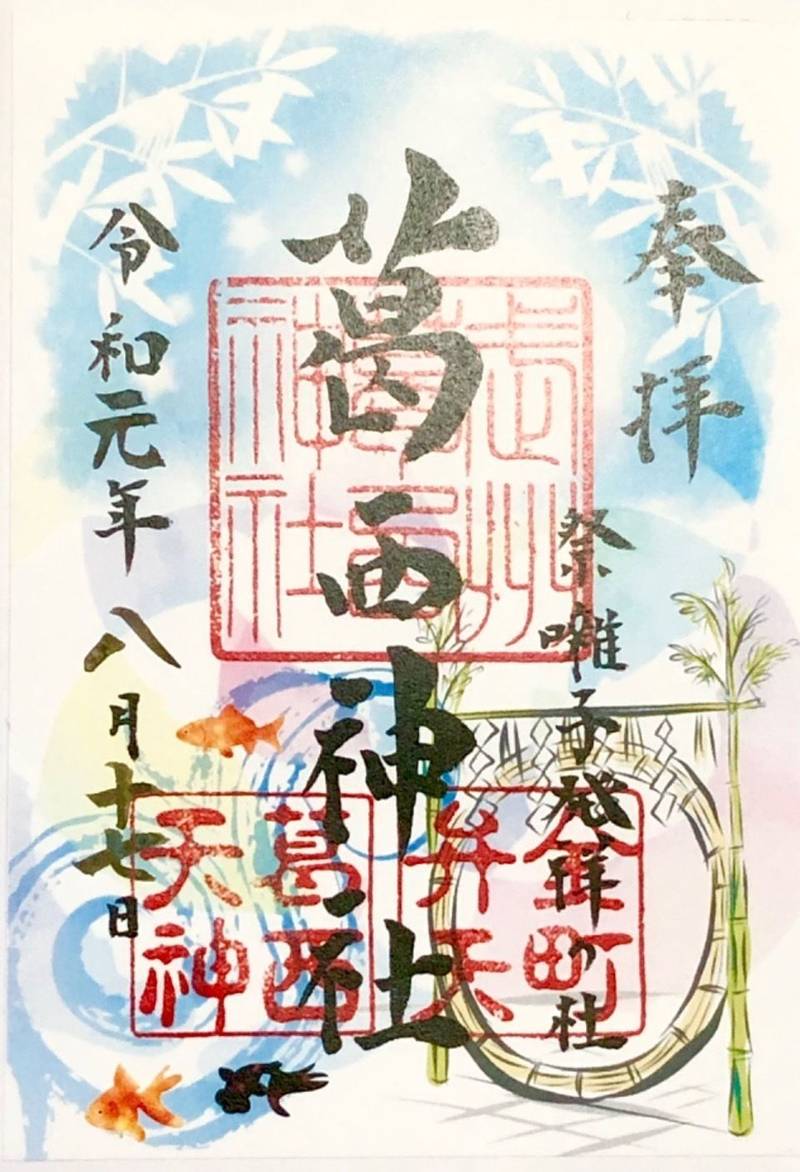 奉拝
祭囃子発祥の杜
葛西神社
令和元年八月十七日
武州
葛西
神社
金町
弁天
葛西
天神